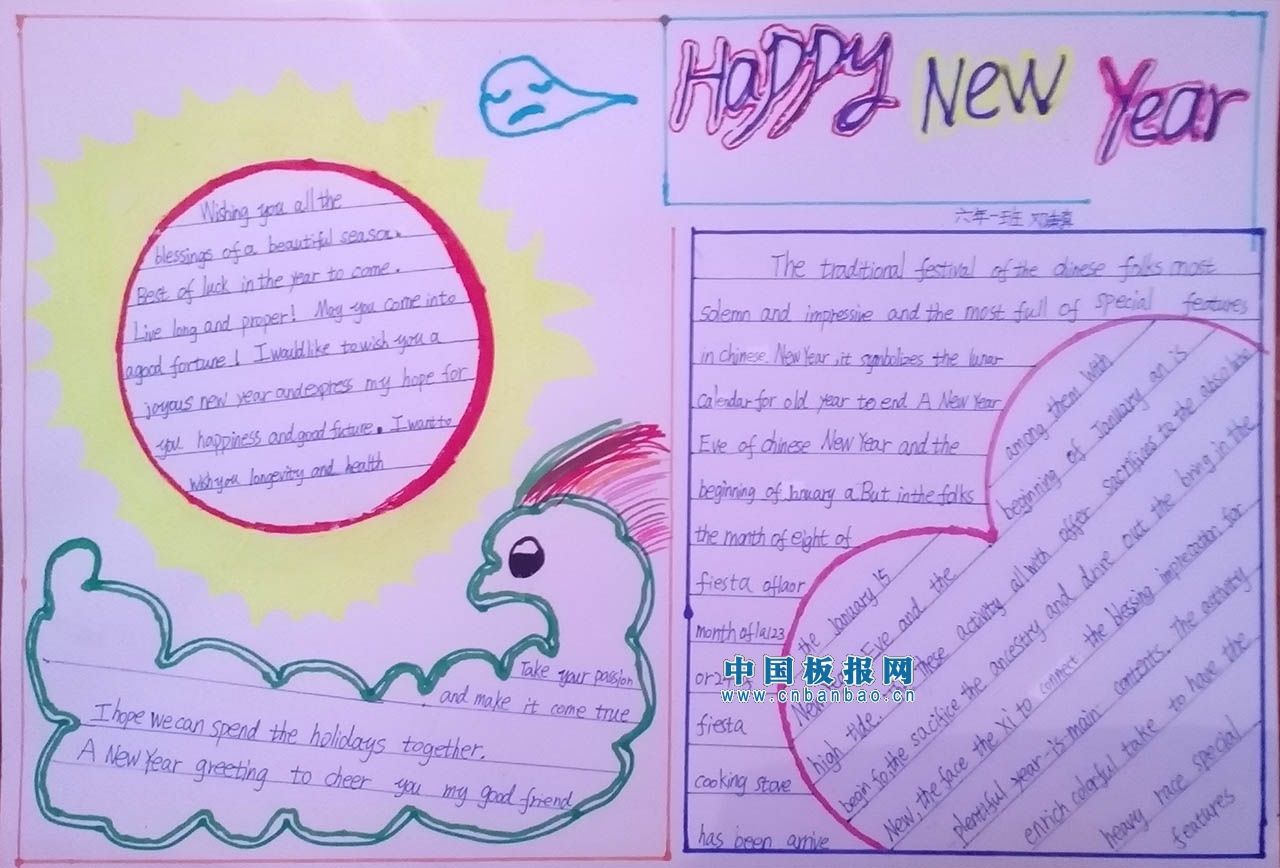 Happy New Year
六年一班
Wishing you all the
blessings of a beautiful season.
Best of luck in the year to come.
Live long and proper! May you come into
a good fortune! I would like to wish you a
joyous new year and express my hope for
you happiness and good future. I want to
wish you longevity and health
Take your passion
and make it come true
I hope we can spend the holidays together.
A New Year greeting to cheer you my good friend
The traditional festival of the chinese folks most
solemn and impressive and the most full of special features
in chinese. New Year, it symbolizes the lunar
calendar for old year to end A New Year
Eve of chinese New Year and the
beginning of January a But in the folks
the month of eight of
fiesta of
month of la123
or
fiesta
cooking stove
has been arrive
among them with
beginning of January an is
the January 15 sacrifices to the absolute
New Eve and the
high tide. these activity all with offer
begin to, the sacifice the ancestry and drive out the bring in the
New, the face the XI to connect the blessing imprecation for
plentiful year-is-main contents. The activity
enrich colorful take to have the
heavy race special
features
中国板报网
www.cnbanbao.cn